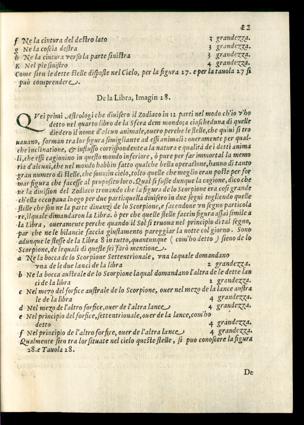 22
f Ne la cintura del destro lato 3 grandezza.
g Ne la coscia destra 3 grandezza.
h Ne la cintura verso la parte sinistra 3 grandezza.
K Nel pie sinistro 4 grandezza.
Come sien le dette stelle disposte nel Cielo, per la figura 27. e per la tauola 27 si
può comprendere
De la Libra, Imagin 28.
QVei primi astrologi che diuisero il Zodiaco in 12 parti nel modo ch'io v'ho
detto nel quarto libro de la Sfera dem mondo; a ciascheduna di quelle
diedero il nome d'alcun animale, ouero perche le stelle, che quiui si tro
uano, forman tra lor figura simigliante ad essi animali: oueramente per qual-
che inclinatione, & influsso corrispondente a la natura e qualità de i detti anima
li, che essi cagionino in questo mondo inferiore, ò pure per far immortal la memo
ria d'alcuni, che nel mondo habbin fatto qualche bella operatione, hanno di tanto
gran numero di stelle, che sono in cielo, tolto quelle che meglio eran poste per for
mar figura che facesse al proposito loro. Qual si fusse dunque la cagione, dico che
ne la diuision del Zodiaco trouando che la figura de lo Scorpione era così grande
ch'ella occupaua luogo per due parti; quella diuisero in due segni togliendo quelle
stelle che son ne la parte dinanzi de lo Scorpione, e facendone vn segno particula
re, il quale dimandaron la Libra. ò per che quelle stelle faccin figura assai simile a
la Libra, oueramente perche quando il Sol si troua nel principio di tal segno,
par che ne le bilancie faccia giustamente pareggiar la notte col giorno. Sono
adunque le stelle de la Libra 8 in tutto, quantunque (com'ho detto) sieno de lo
Scorpione, de le quali di quelle sei farò mentione
a Ne la bocca de lo Scorpione Settentrionale, vna la quale domandano
vna de le due lanci de la libra 2 grandezza.
b Ne la bocca australe de lo Scorpione la qual domandano l'altra de le dette lan
ci de la libra 2 grandezza.
c Nel mezo del forfice australe de lo Scorpione, ouer nel mezo de la lance austra
le de la libra 4 grandezza.
d Nel mezo de l'altro forfice, ouer de l'altra lance 4 grandezza.
e Nel principio del forfice, settentrionale, ouer de la lance, com'ho
detto 4 grandezza.
f Nel principio de l'altro forfice, ouer de l'altra lance 4 grandezza.
Qualmente sien tra lor situate nel cielo queste stelle, si può conoscere la figura
28. e Tauola 28.
De